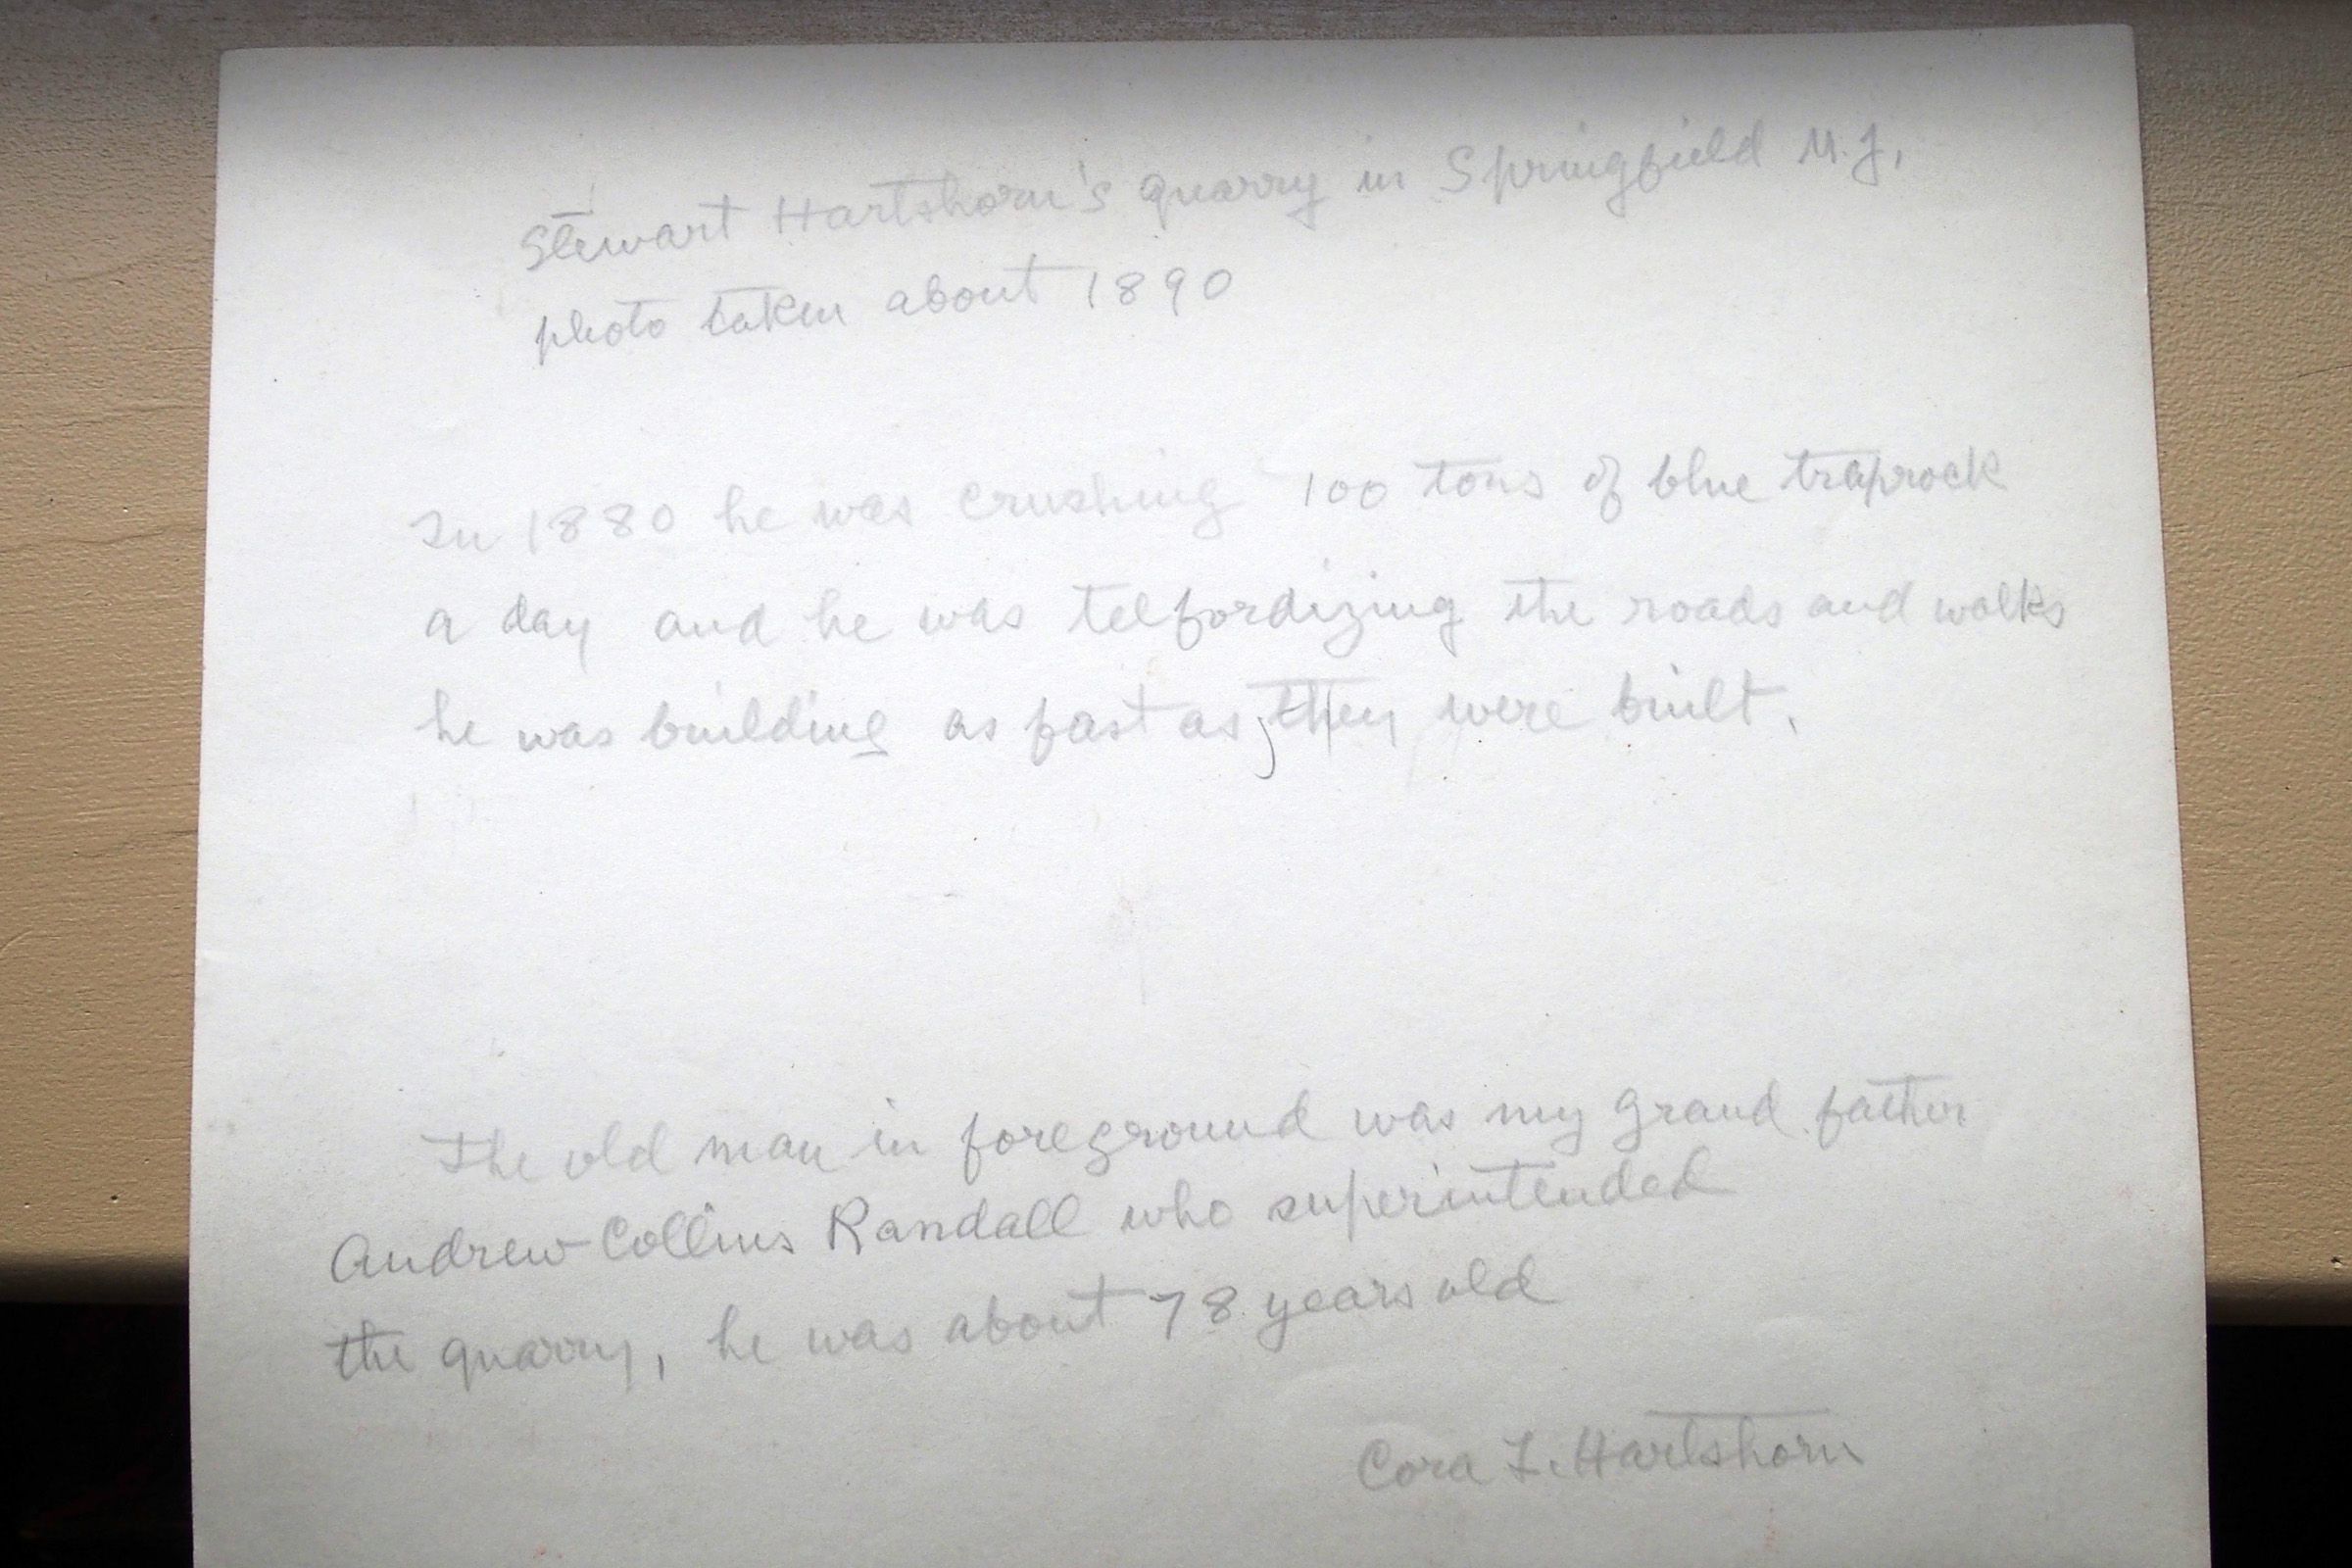 Stewart Hartshorn's quarry in Springfield N.J.,
photo taken about 1890
In 1880 he was crushing 100 tons of blue traprock
a day and he was telfordizing the roads and walks
he was building as fast as they were built.
The old man in foreground was my grand father
Andrew Collins Randall who superintended
the quarry, he was about 78 years old
Cora L. Hartshorn